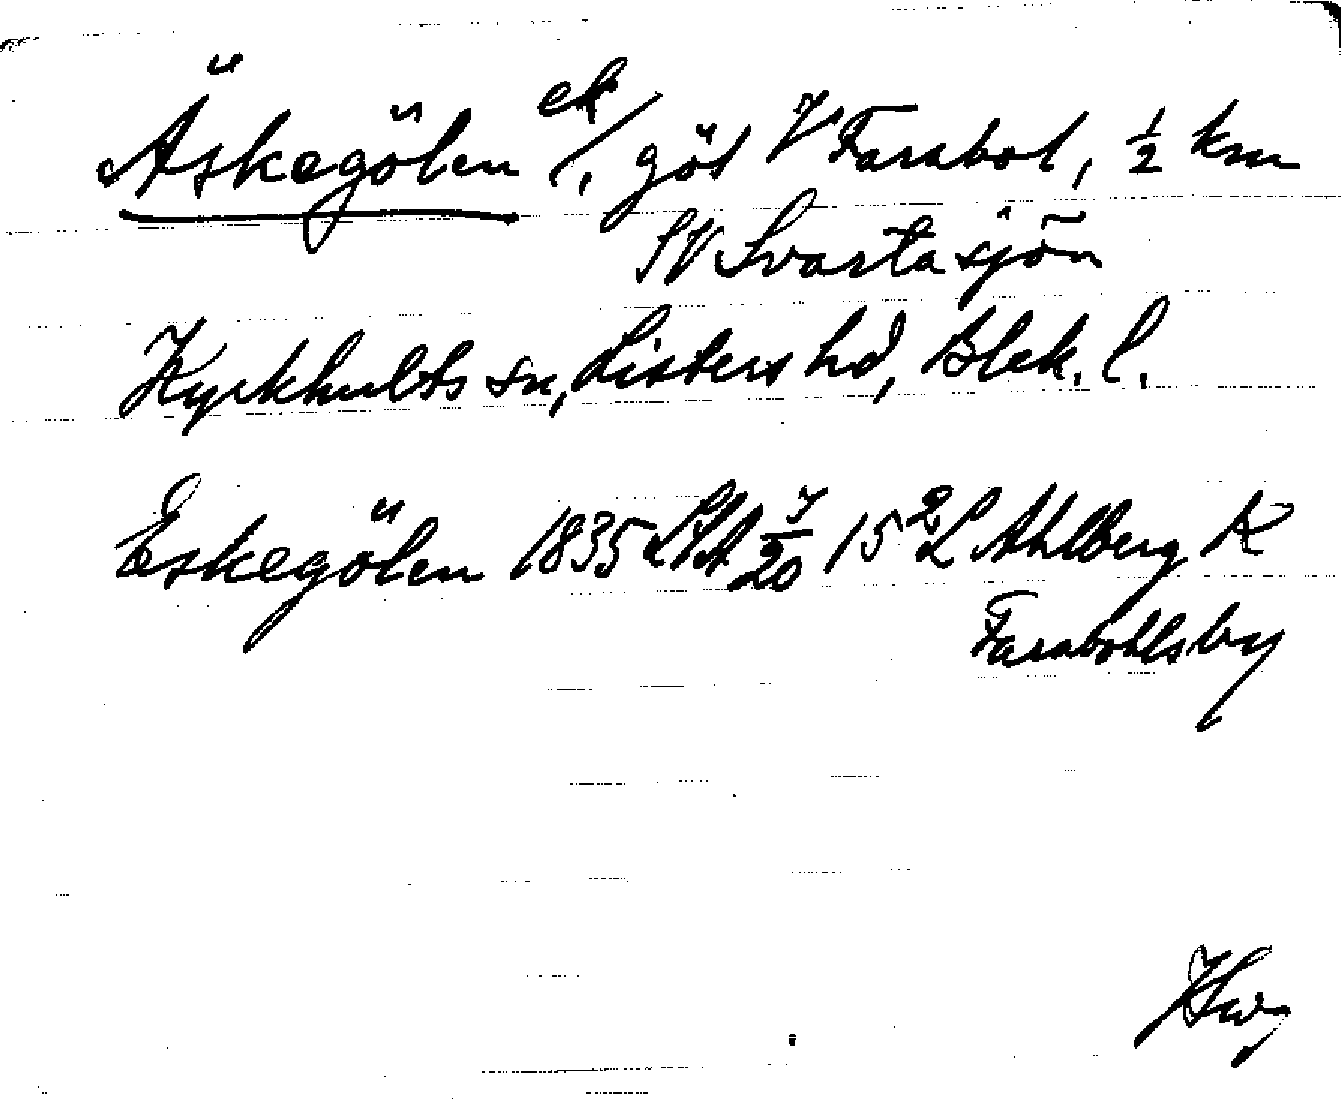 Äskegölen ek/, göl V Farabol, ½ km
SV Svartasjön
Kyrkhults sn, Listers hd, Blek. l.
Eskegölen 1835 LSA 7/20 15² L Ahlberg K
Farabohls by